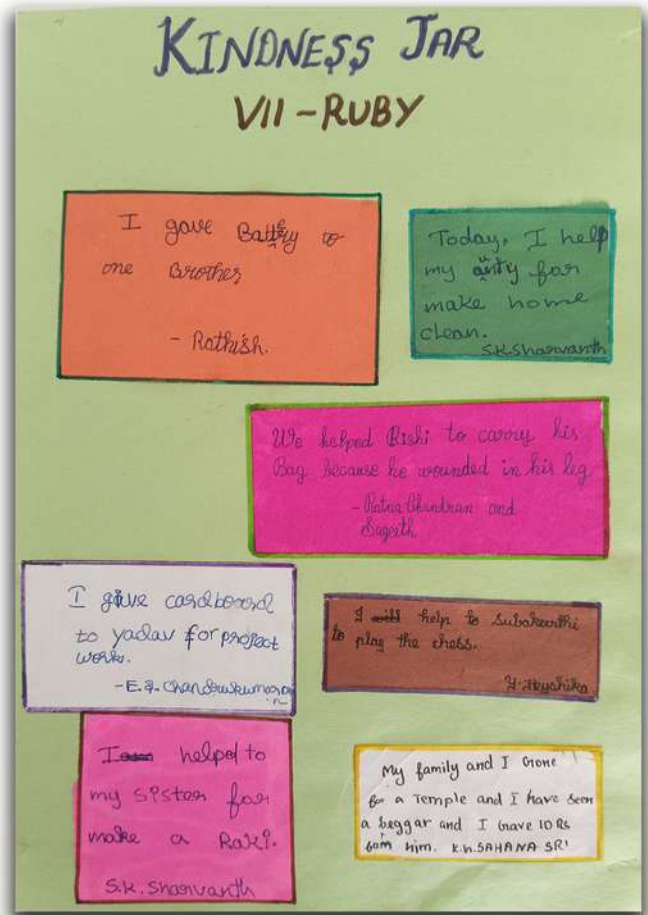 KINDNESS JAR
VII - RUBY
I gave Battery to
one Brother
- Rathish.
Today, I help
my aunty for
make home
clean.
S.K.Sharvanth
We helped Rishi to carry his
Bag because he wounded in his leg
- Ratna Chandran and
Sageeth
I give cardboard
to yadav for project
works.
I help to Subakeerthi
to play the chess.
I helped to
my sister for
make a Raki.
S.K. Sharvanth
My family and I Gone
for a Temple and I have seen
a beggar and I Gave 10 Rs
him. K.H.SAHANA SRI